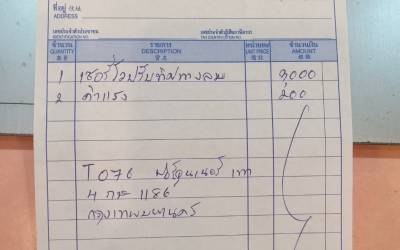 ที่อยู่
ADDRESS
เลขประจำตัวประชาชน เลขประจำตัวผู้เสียภาษีอากร
IDENTIFICATION NO. TAX IDENTIFICATION NO.
จำนวน รายการ หน่วยละ จำนวนเงิน
QUANTITY DESCRIPTION UNIT PRICE AMOUNT
1 เซอร์โวปรับทิศทางลม 3,000
2 ค่าแรง 200
T076 ฟอร์จูนเนอร์ เทา
4 กฮ 1186
กรุงเทพมหานคร